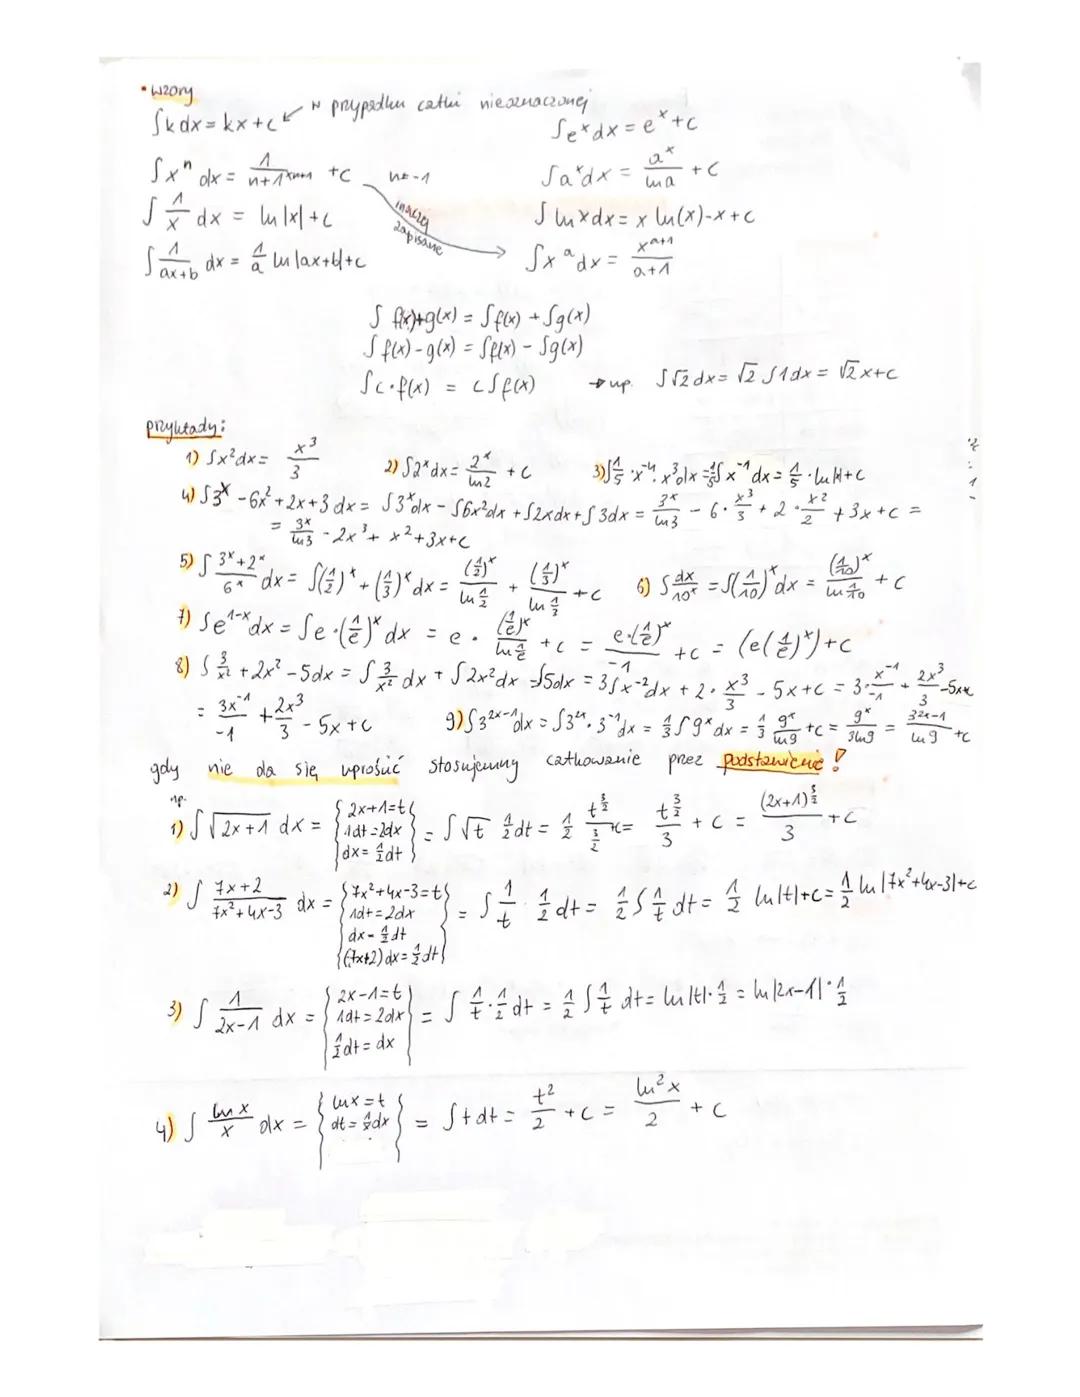 • wzory
∫k dx = kx+c ↙ w przypadku całki nieoznaczonej
∫e^x dx = e^x + c
∫x^n dx = 1/(n+1) x^(n+1) + c n≠-1
∫a^x dx = a^x/ln a + c
∫ 1/x dx = ln|x| + c
inaczej zapisane
∫ ln x dx = x ln(x)-x+c
∫ 1/(ax+b) dx = 1/a ln|ax+b|+c
∫x^a dx = x^(a+1)/(a+1)
∫ f(x)+g(x) = ∫f(x) + ∫g(x)
∫ f(x)-g(x) = ∫f(x) - ∫g(x)
∫c·f(x) = c∫f(x) → np. ∫√2 dx = √2 ∫1dx = √2x+c
przykłady:
1) ∫x²dx = x³/3 2) ∫2^x dx = 2^x/ln2 + c 3) ∫1/5 · x^-4 · x³ dx = 1/5 ∫x^-1 dx = 1/5 · ln|x|+c
4) ∫3^x - 6x² + 2x + 3 dx = ∫3^x dx - ∫6x²dx + ∫2xdx + ∫3dx = 3^x/ln3 - 6·x³/3 + 2·x²/2 + 3x + c =
= 3^x/ln3 - 2x³ + x² + 3x + c
5) ∫ (3^x+2^x)/6^x dx = ∫(1/2)^x + (1/3)^x dx = (1/2)^x/ln 1/2 + (1/3)^x/ln 1/3 + c 6) ∫dx/10^x = ∫(1/10)^x dx = (1/10)^x/ln 1/10 + c
7) ∫e^(1-x)dx = ∫e·(1/e)^x dx = e · (1/e)^x/ln 1/e + c = e·(1/e)^x/-1 + c = (e(1/e)^x)+c
8) ∫ 3/x² + 2x² - 5dx = ∫ 3/x² dx + ∫2x²dx - ∫5dx = 3∫x^-2 dx + 2·x³/3 - 5x+c = 3·x^-1/-1 + 2x³/3 - 5x+c
= 3x^-1/-1 + 2x³/3 - 5x + c 9) ∫3^(2x-1)dx = ∫3^2x · 3^-1 dx = 1/3 ∫9^x dx = 1/3 9^x/ln9 + c = 9^x/3ln9 = 3^(2x-1)/ln9 + c
gdy nie da się uprościć stosujemy całkowanie przez podstawienie!
np.
1) ∫√(2x+1) dx = { 2x+1=t 1dt=2dx dx=1/2dt } = ∫√t 1/2dt = 1/2 t^(3/2)/(3/2) +c = t^(3/2)/3 + c = (2x+1)^(3/2)/3 + c
2) ∫ (7x+2)/(7x²+4x-3) dx = { 7x²+4x-3=t 1dt=2dx dx=1/2dt (7x+2)dx=1/2dt } = ∫ 1/t · 1/2 dt = 1/2 ∫1/t dt = 1/2 ln|t|+c = 1/2 ln|7x²+4x-3|+c
3) ∫ 1/(2x-1) dx = { 2x-1=t 1dt=2dx 1/2dt=dx } = ∫ 1/t · 1/2 dt = 1/2 ∫1/t dt = ln|t|·1/2 = ln|2x-1|·1/2
4) ∫ ln x/x dx = { ln x=t dt=1/x dx } = ∫t dt = t²/2 + c = ln²x/2 + c